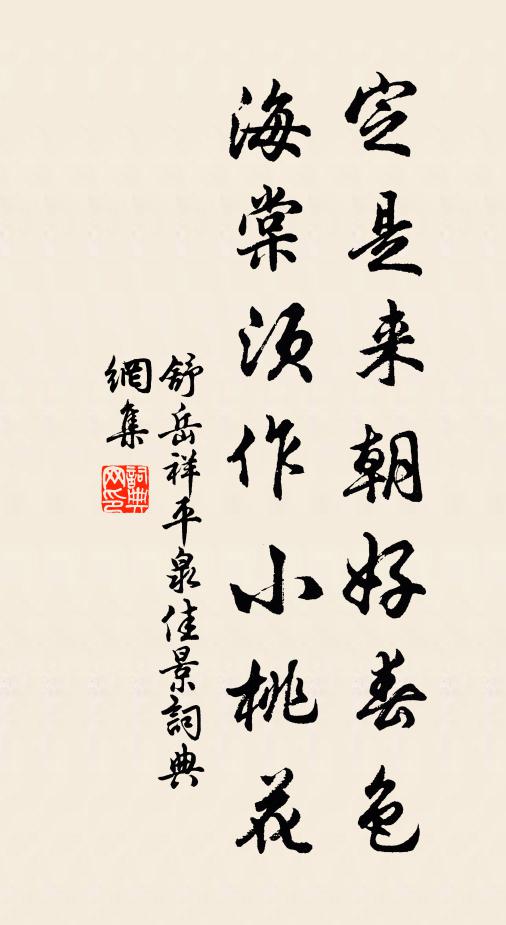 定是来朝好春色
海棠须作小桃花
舒岳祥平泉佳景詞典
網集
詞典
网印